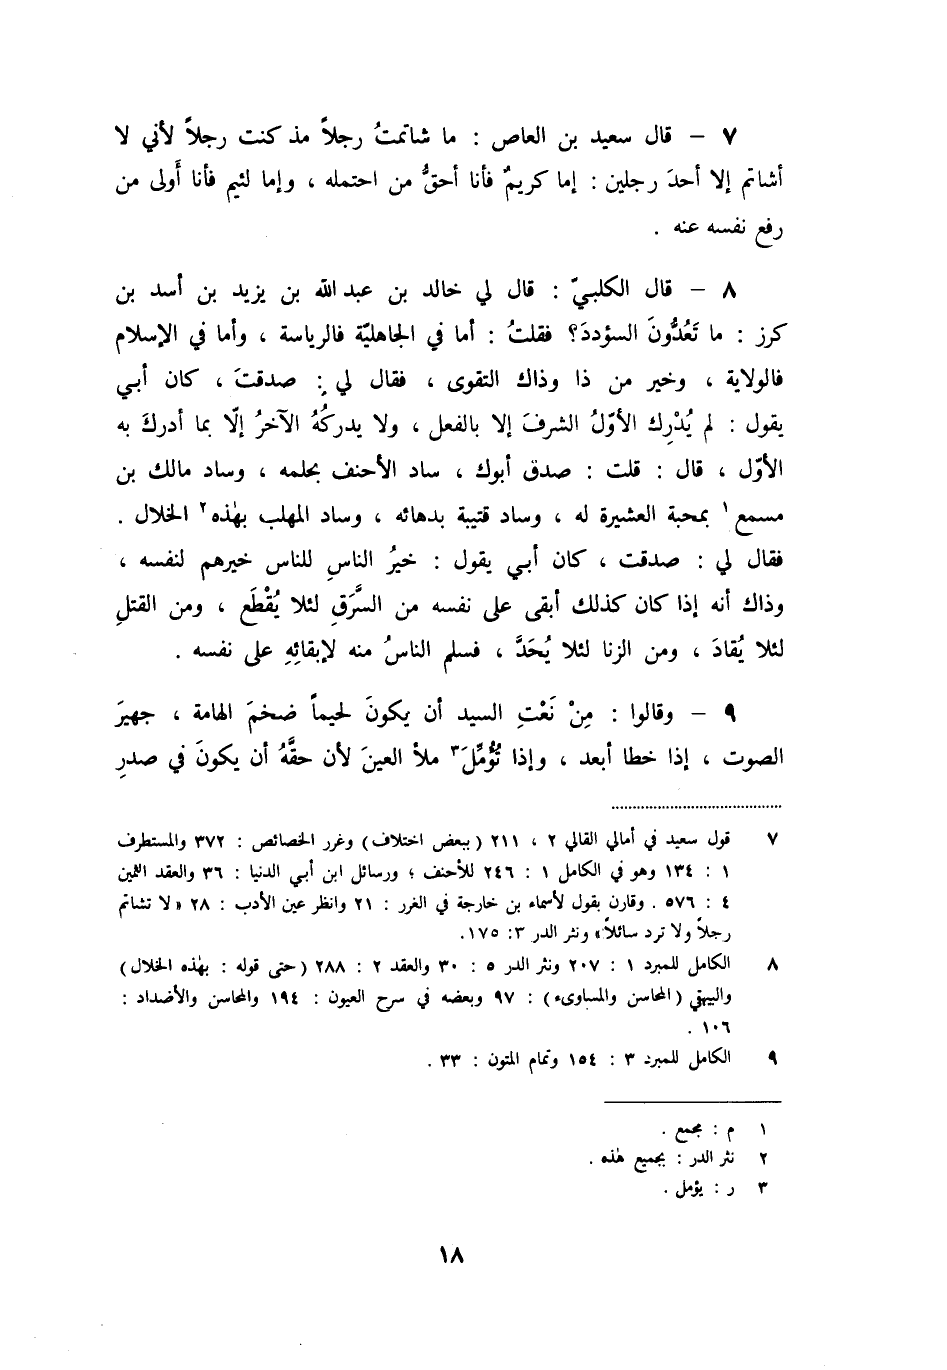 ٧ – قال سعيد بن العاص : ما شاتمتُ رجلاً مذ كنت رجلاً لأني لا
أشاتم إلا أحدَ رجلين : إما كريمٌ فأنا أحقُّ من احتمله ، وإما لئيم فأنا أَولى من
رفع نفسه عنه .
٨ – قال الكلبيّ : قال لي خالد بن عبد الله بن يزيد بن أسد بن
كرز : ما تَعُدُّونَ السؤددَ؟ فقلتُ : أما في الجاهليّة فالرياسة ، وأما في الإسلام
فالولاية ، وخير من ذا وذاك التقوى ، فقال لي : صدقتَ ، كان أبي
يقول : لم يُدْرِك الأوّلُ الشرفَ إلا بالفعل ، ولا يدركُهُ الآخرُ إلّا بما أدركَ به
الأوّل ، قال : قلت : صدق أبوك ، ساد الأحنف بحلمه ، وساد مالك بن
مسمع١ بمحبة العشيرة له ، وساد قتيبة بدهائه ، وساد المهلب بهذه٢ الخلال .
فقال لي : صدقت ، كان أبي يقول : خيرُ الناسِ للناس خيرهم لنفسه ،
وذاك أنه إذا كان كذلك أبقى على نفسه من السَّرَقِ لئلا يُقْطَع ، ومن القتلِ
لئلا يُقادَ ، ومن الزنا لئلا يُحَدَّ ، فسلم الناسُ منه لإبقائِهِ على نفسه .
٩ – وقالوا : مِنْ نَعْتِ السيد أن يكونَ لحيماً ضخمَ الهامة ، جهيرَ
الصوت ، إذا خطا أبعد ، وإذا تُؤُمِّلَ٣ ملأ العينَ لأن حقَّهُ أن يكونَ في صدرِ
٧ قول سعيد في أمالي القالي ٢ ، ٢١١ (ببعض اختلاف) وغرر الخصائص : ٣٧٢ والمستطرف
١ : ١٣٤ وهو في الكامل ١ : ٢٤٦ للأحنف ؛ ورسائل ابن أبي الدنيا : ٣٦ والعقد الثمين
٤ : ٥٧٦ . وقارن بقول لأسماء بن خارجة في الغرر : ٢١ وانظر عين الأدب : ٢٨ «لا تشاتم
رجلاً ولا ترد سائلاً» ونثر الدر ٣: ١٧٥.
٨ الكامل للمبرد ١ : ٢٠٧ ونثر الدر ٥ : ٣٠ والعقد ٢ : ٢٨٨ (حتى قوله : بهذه الخلال)
والبيهقي (المحاسن والمساوىء) : ٩٧ وبعضه في سرح العيون : ١٩٤ والمحاسن والأضداد :
١٠٦ .
٩ الكامل للمبرد ٣ : ١٥٤ وتمام المتون : ٣٣ .
١ م : مجمع .
٢ نثر الدر : بجميع هذه .
٣ ر : يؤمل .
١٨